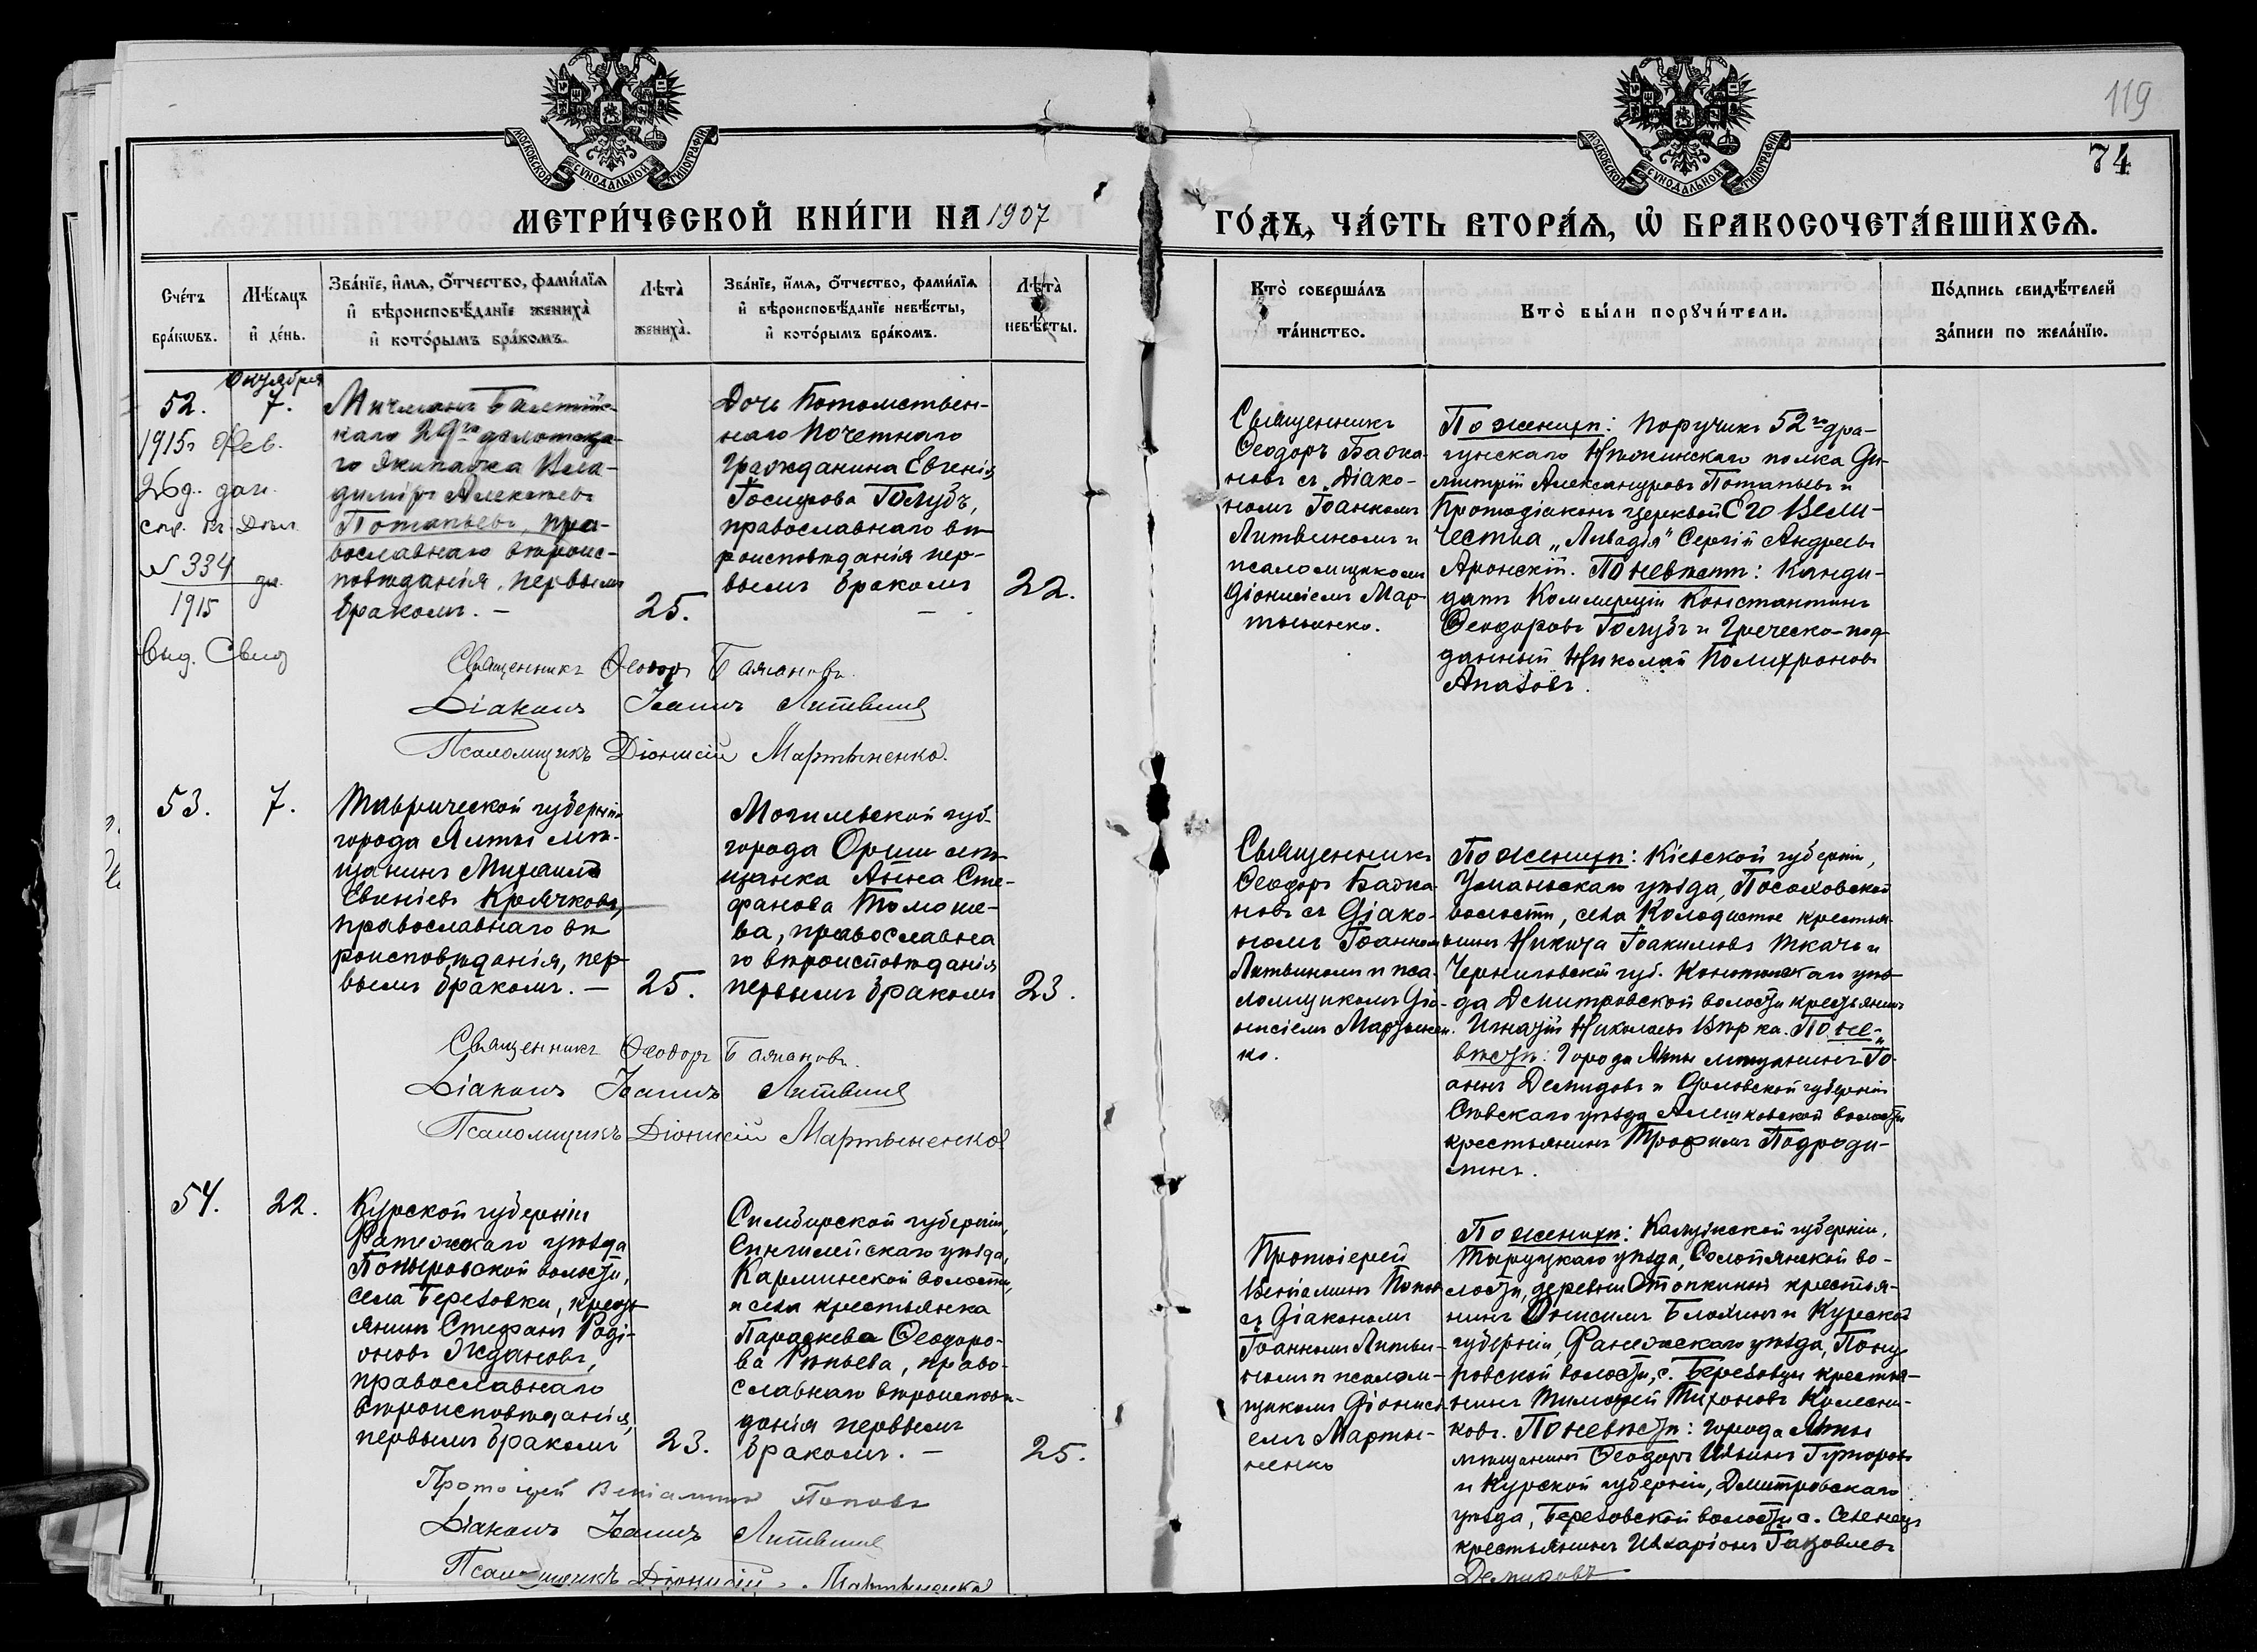 119
74
МОСКОВСКОЙ СУНОДАЛЬНОЙ ТИПОГРАФІИ
МОСКОВСКОЙ СУНОДАЛЬНОЙ ТИПОГРАФІИ
МЕТРИ́ЧЕСКОЙ КНИ́ГИ НА 1907
ГО́ДЪ, ЧА́СТЬ ВТОРА́Я, Ѡ҆ БРАКОСОЧЕТА́ВШИХСЯ.
Сче́тъ бра́кѡвъ.
Мѣ́сяцъ и҆ де́нь.
Зва́нїе, и҆́мя, ѻ҆́тчество, фами́лїя и҆ вѣроисповѣ́данїе жениха̀ и҆ кото́рымъ бра́комъ.
Лѣта̀ жениха̀.
Зва́нїе, и҆́мя, ѻ҆́тчество, фами́лїя и҆ вѣроисповѣ́данїе невѣ́сты, и҆ кото́рымъ бра́комъ.
Лѣта̀ невѣ́сты.
Кто̀ соверша́лъ та́инство.
Кто̀ бы́ли порꙋчи́тели.
По́дпись свидѣ́телей за́писи по жела́нїю.
Октября
52. 7.
1915г Фев.
26д. дан.
спр. въ
№ 334
1915
Выд. Свид
Мичманъ Балтійс-
каго 29го флотска-
го Экипажа Вла-
диміръ Алексѣевъ
Потапьевъ, пра-
вославнаго вѣроис-
повѣданія, первымъ
бракомъ. —
25.
Дочь Потомствен-
наго Почетнаго
Гражданина Евгенія
Голубъ,
православнаго вѣ
роисповѣданія пер-
вымъ бракомъ
22.
Священникъ
Ѳеодоръ Баяка
новъ съ Діако-
номъ Іоанномъ
Литвиномъ и
псаломщикомъ
Діонисіемъ Мар-
тыненко.
По женихѣ: Поручикъ 52го дра-
гунскаго Нѣжинскаго полка Ди-
митрій Александровъ Потапьевъ и
Протодіаконъ церквей Его Вели-
чества „Ливадія" Сергій Андреевъ
Аронскій. По невѣстѣ: Канди-
датъ Коммерціи Константинъ
Ѳеодоровъ Голубъ и Греческо-под-
данный Николай Полихроновъ
Апазовъ.
Священникъ Ѳеодоръ Баякановъ.
Діаконъ Іоаннъ Литвинъ
Псаломщикъ Діонисій Мартыненко.
53. 7.
Таврической губерніи
города Ялты мѣ-
щанинъ Михаилъ
Евгеніевъ Крячковъ,
православнаго вѣ
роисповѣданія, пер-
вымъ бракомъ. —
25.
Могилевской губ.
города Орши мѣ-
щанка Анна Сте-
фанова Томоше-
ва, православна
го вѣроисповѣданія
первымъ бракомъ
23.
Священникъ
Ѳеодоръ Баяка
новъ съ Діако-
номъ Іоанномъ
Литвиномъ и пса-
ломщикомъ Діо-
нисіемъ Мартынен-
ко.
По женихѣ: Кіевской губерніи,
Уманьскаго уѣзда, Посоховской
волости, села Колодистое крестья-
нинъ Никита Іоакимовъ Ткачъ и
Черниговской губ. Конотопскаго уѣз-
да Дмитровской волости крестьянинъ
Игнатій Николаевъ Вѣрка. По не-
вѣстѣ: Города Ялты мѣщанинъ Іо-
аннъ Демидовъ и Орловской губерніи
Сѣвскаго уѣзда Алешковской волости
крестьянинъ Трофимъ Подроди-
минъ.
Священникъ Ѳеодоръ Баякановъ.
Діаконъ Іоаннъ Литвинъ
Псаломщикъ Діонисій Мартыненко
54. 22.
Курской губерніи
Фатежскаго уѣзда
Поныровской волости,
села Березовки, кресть
янинъ Стефанъ Роді-
оновъ Ждановъ,
православнаго
вѣроисповѣданія,
первымъ бракомъ
23.
Симбирской губерніи,
Сингилейскаго уѣзда,
Карлинской волости,
и села крестьянка
Параскева Ѳеодоро-
ва Рѣпьева, право-
славнаго вѣроисповѣ-
данія первымъ
бракомъ. —
25.
Протоіерей
Веніаминъ Поповъ
съ Діакономъ
Іоанномъ Литви-
номъ и псалом-
щикомъ Діонисі-
емъ Марты-
ненко
По женихѣ: Калужской губерніи,
Тарусскаго уѣзда, Солопянской во-
лости, деревни Отопкиной крестья-
нинъ Онисимъ Блохинъ и Курской
губерніи, Фатежскаго уѣзда, Поны-
ровской волости, с. Березовки крестья-
нинъ Тимофей Тихоновъ Колесни-
ковъ. По невѣстѣ: города Ялты
мѣщанинъ Ѳеодоръ Ильинъ
и Курской губерніи, Дмитровскаго
уѣзда, Березовской волости с.
крестьянинъ Иларіонъ Іаковлевъ
Протоіерей Веніаминъ Поповъ
Діаконъ Іоаннъ Литвинъ
Псаломщикъ Діонисій Мартыненко